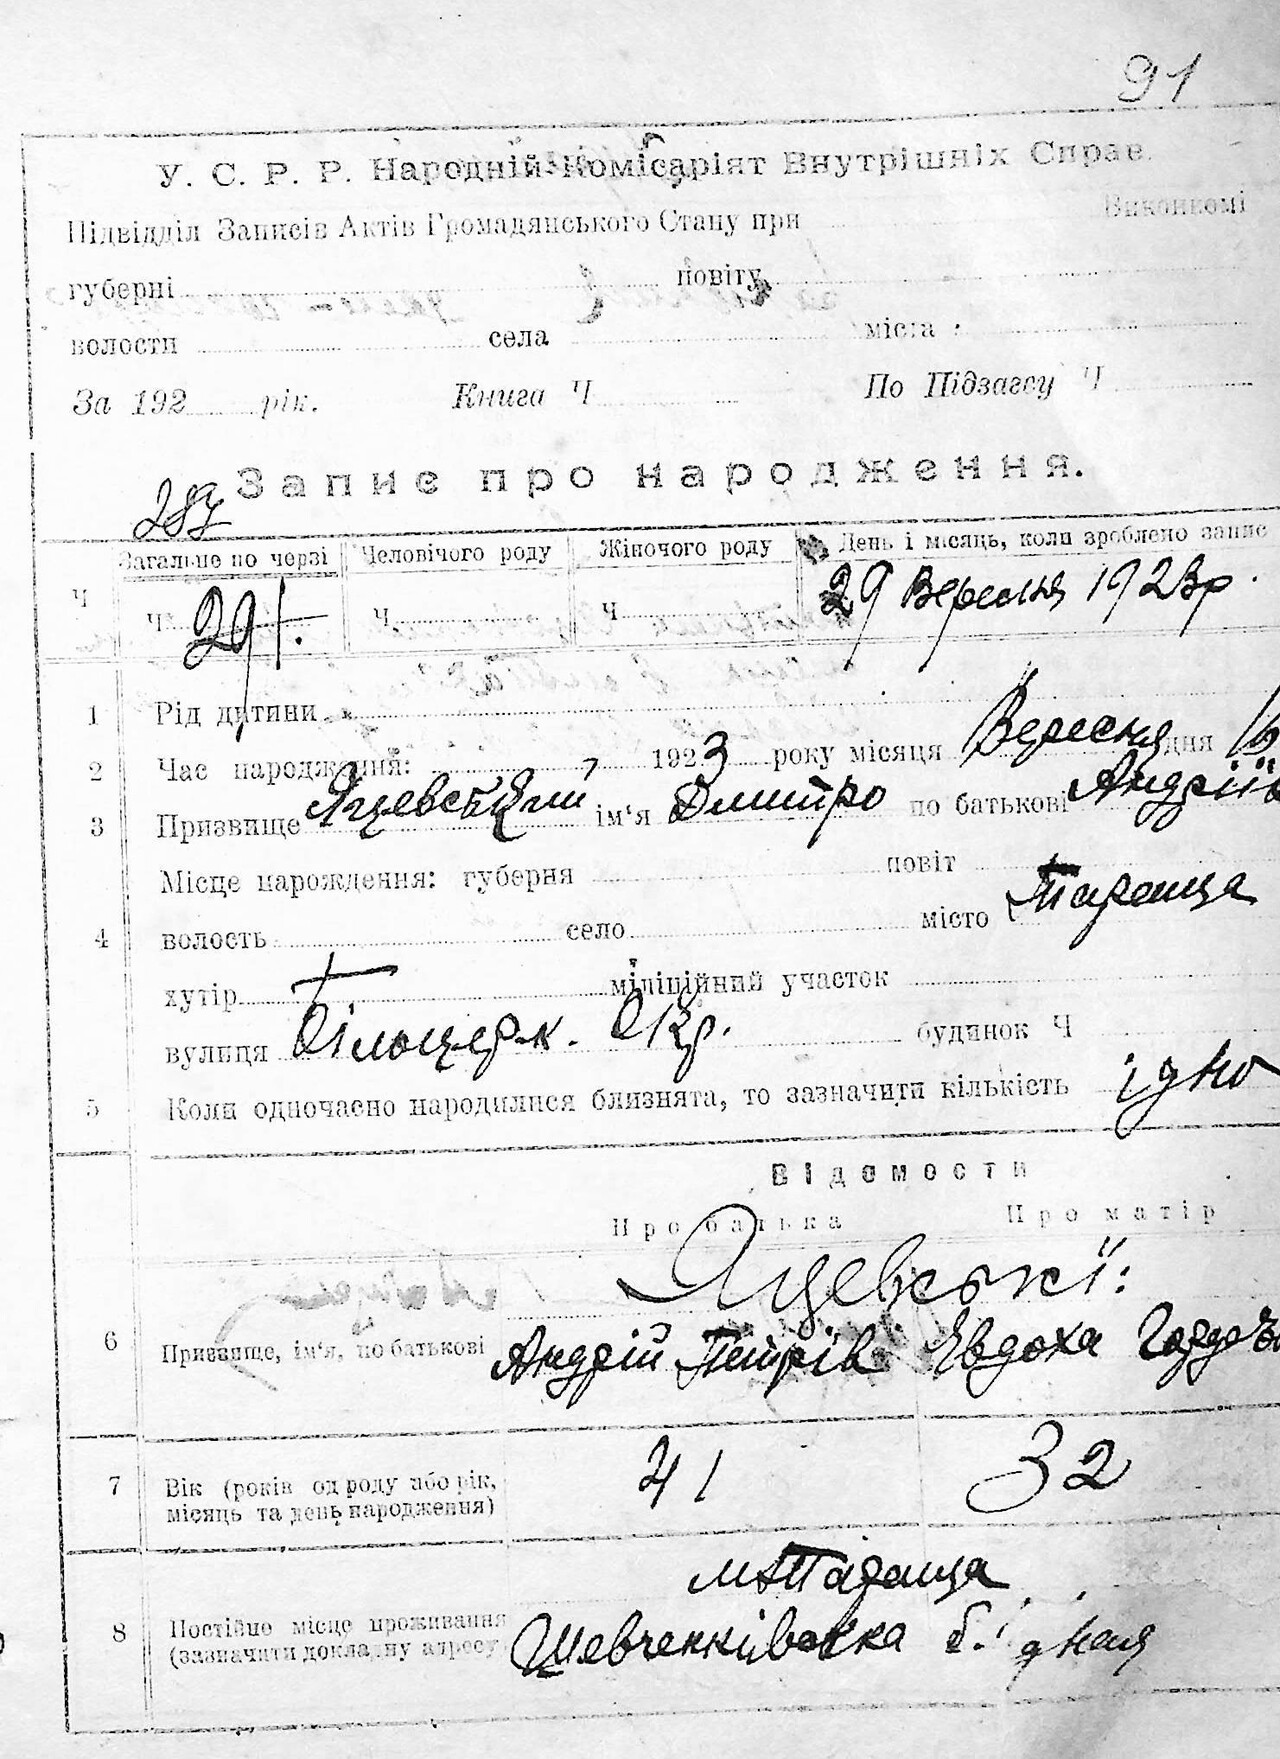 91
У. С. Р. Р. Народній Комісаріят Внутрішніх Справ.
Підвідділ Записів Актів Громадянського Стану при Виконкомі
губерні повіту
волости село міста
За 192 рік. Книга Ч По Підзагсу Ч
Запис про народження.
287
Загальне по черзі Человічого роду Жіночого роду День і місяць, коли зроблено запис
Ч Ч 291. Ч Ч 29 Вересня 1923 р.
1 Рід дитини
2 Час народження: 1923 року місяця Вересня дня 16
3 Призвище Яцевський ім'я Дмитро по батькові Андріїв
Місце народження: губерня повіт
4 волость село місто Тараща
хутір міліційний участок
вулиця Білоцерк. Окр. будинок Ч
5 Коли одночасно народилися близнята, то зазначити кількість їдно
Відомости
Про батька Про матір
Яцевські:
6 Призвище, ім'я, по батькові Андрій Петрів Явдоха
7 Вік (років од роду або рік, 41 32
місяць та день народження)
м. Тараща
8 Постійне місце проживання
(зазначити докладну адресу Шевченківска б.